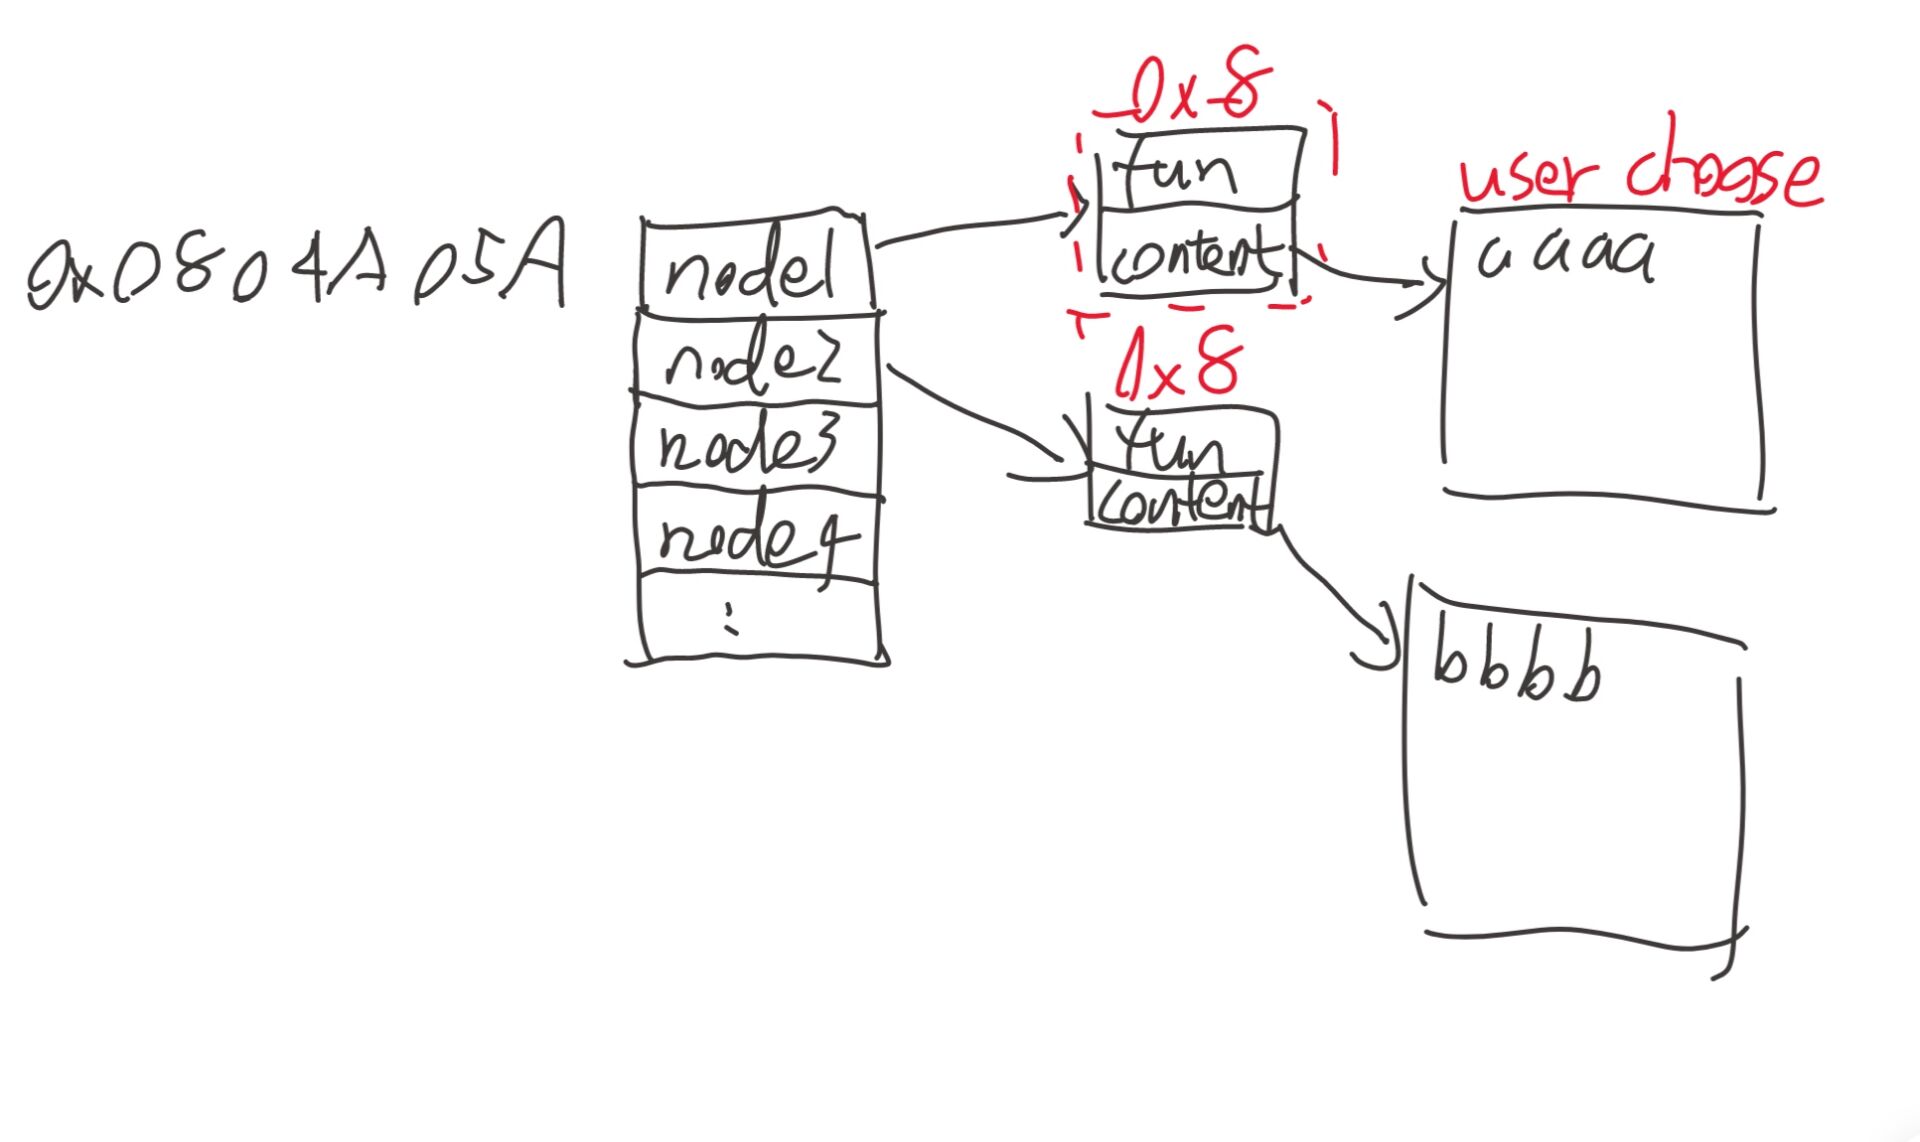 0x0804A05A
node1
node2
node3
node4
:
0x8
fun
content
0x8
fun
content
user choose
aaaa
bbbb